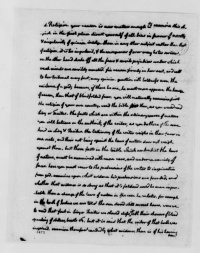 4. Religion. your reason is now mature enough to examine this ob-
ject. in the first place divest yourself of all bias in favour of novelty
& singularity of opinion. indulge them in any other subject rather than that
of religion. it is too important, & the consequences of error may be too serious.
on the other hand shake off all the fears & servile prejudices under which
weak minds are servilely crouched. fix reason firmly in her seat, and call
to her tribunal every fact, every opinion. question with boldness even the
existence of a god; because, if there be one, he must more approve the homage
of reason, than that of blindfolded fear. you will naturally examine first
the religion of your own country. read the bible then, as you would read
Livy or Tacitus. the facts which are within the ordinary course of nature
you will believe on the authority of the writer, as you do those of the same
kind in Livy & Tacitus. the testimony of the writer weighs in their favor in
one scale, and their not being against the laws of nature does not weigh
against them. but those facts in the bible which contradict the laws
of nature, must be examined with more care, and under a variety of
faces. here you must recur to the pretensions of the writer to inspiration
from god. examine upon what evidence his pretensions are founded, and
whether that evidence is so strong as that it's falshood would be more impro-
bable than a change of the laws of nature in the case he relates. for example
in the book of Joshua we are told the sun stood still several hours. were we
to read that fact in Livy or Tacitus we should class it with their showers of blood,
speaking of statues, beasts &c. but it is said that the writer of that book was
inspired. examine therefore candidly what evidence there is of his having